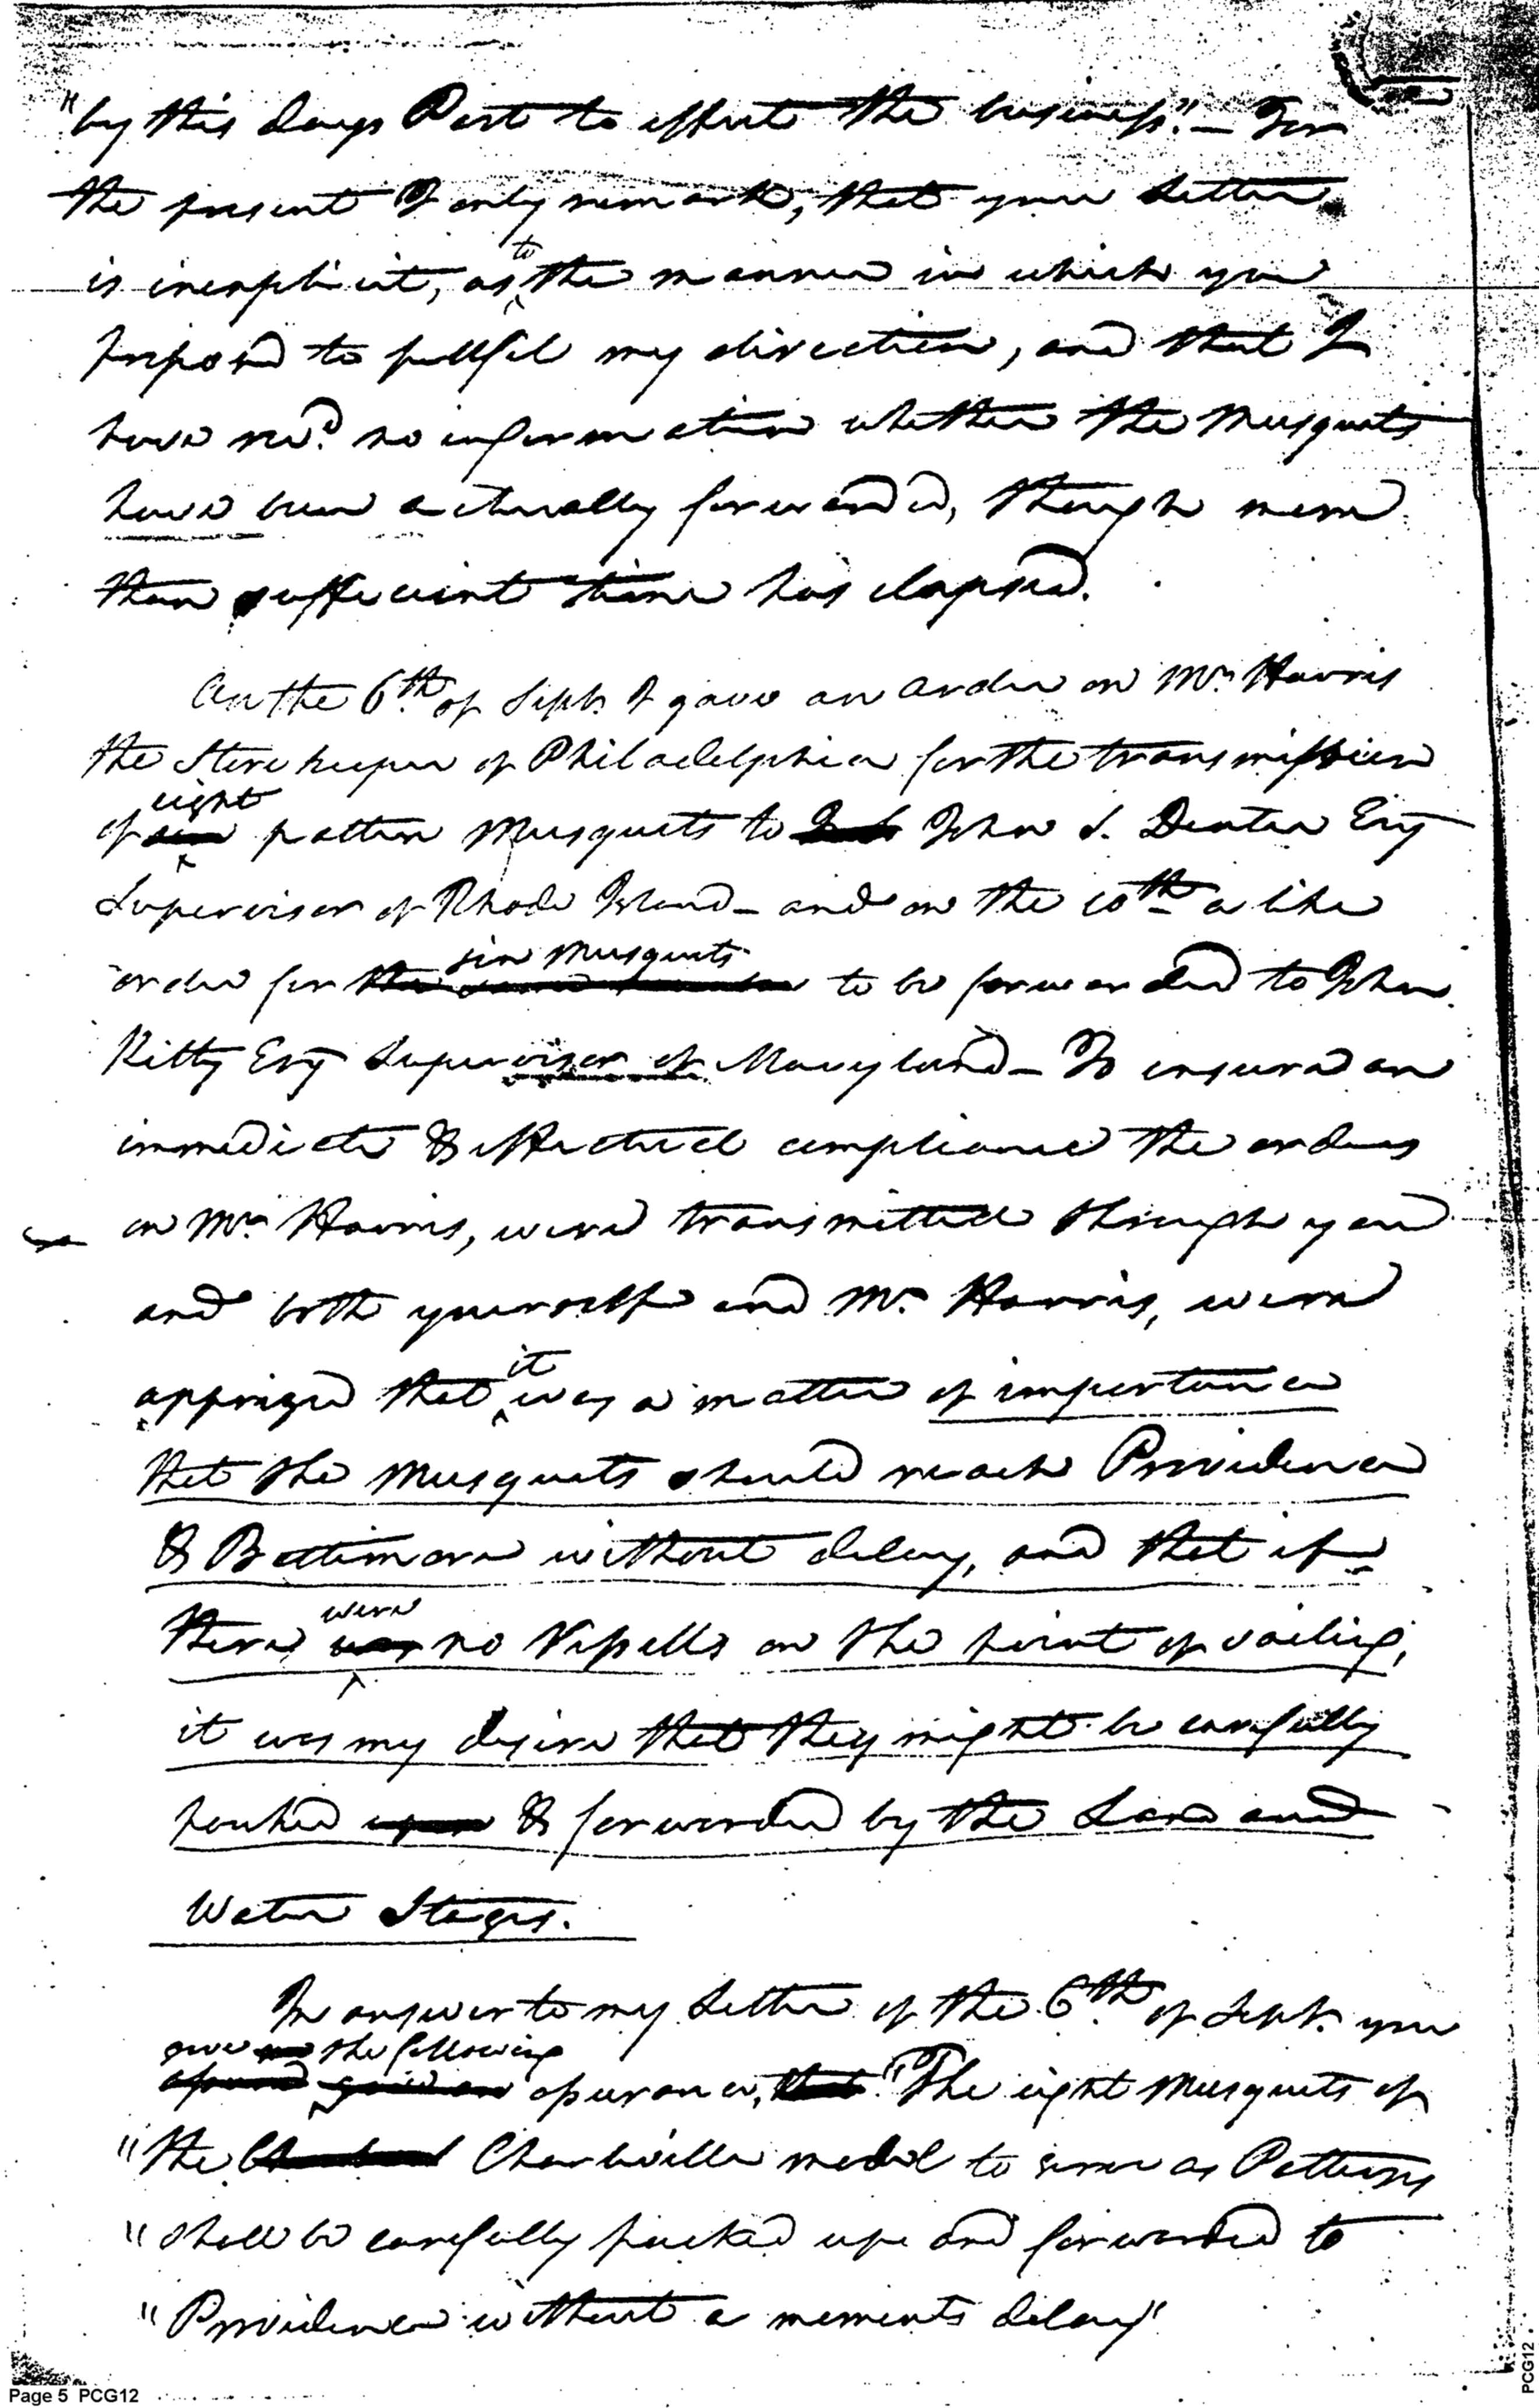 "by this days Post to effect the business." — For
the present I only remark, that your Letter
is inexplicit, as to the manner in which you
propose to fullfil my direction, and that I
have recd. no information whether the Musquets
have been actually forwarded, though more
than sufficient time has elapsed.
On the 6th of Sept. I gave an order on Mr. Harris
the Store keeper of Philadelphia for the transmission
of eight pattern Musquets to John S. Dexter Esq
Supervisor of Rhode Island — and on the 10th a like
order for six Musquets to be forwarded to John
Kilty Esq Supervisor of Maryland — To insure an
immediate & effectual compliance the orders
on Mr. Harris, were transmitted through you
and both yourself and Mr. Harris, were
apprized that it was a matter of importance
that the Musquets should reach Providence
& Baltimore without delay, and that if
there were no Vessells on the point of sailing,
it was my desire that they might be carefully
packed & forwarded by the Land and
Water Stages.
In answer to my Letter of the 6th of Sept. you
give the following
assurance, "The eight Musquets of
"the Charleville model to serve as Patterns
"shall be carefully packed up and forwarded to
"Providence without a moments delay"
Page 5 PCG12
PCG12